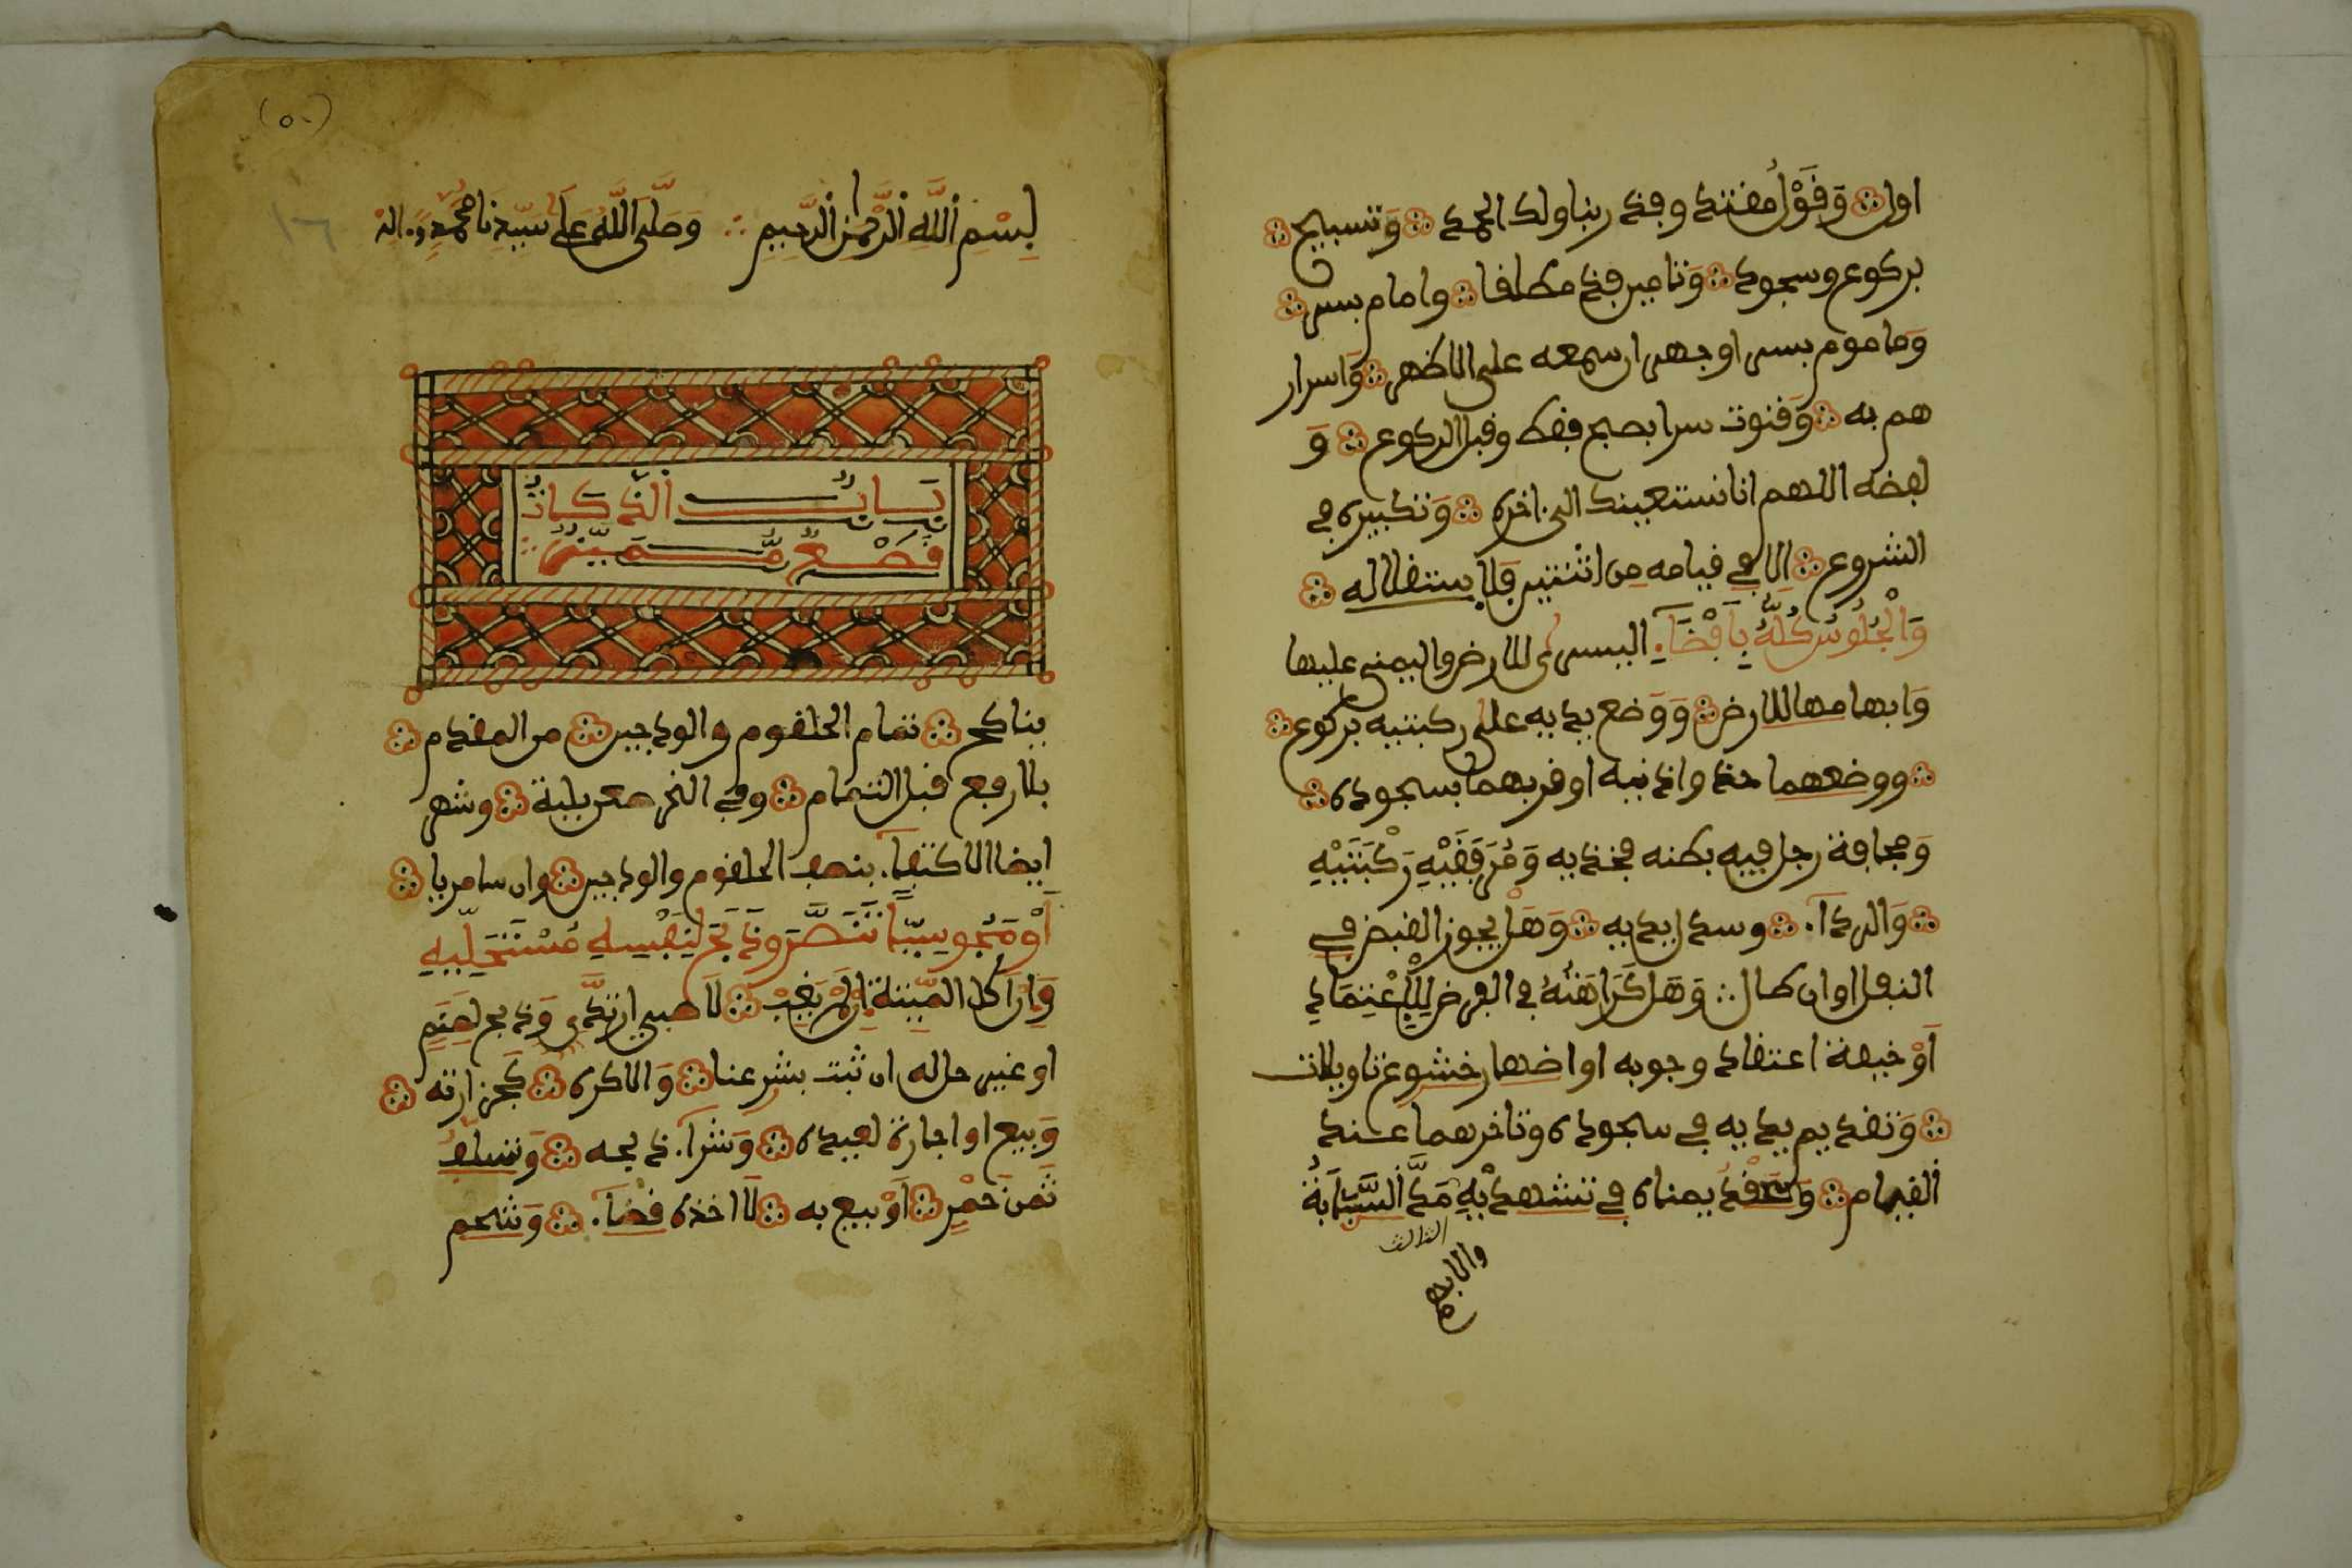 اول وَقَوْلُ مقتد وفذ ربنا ولك الحمد وَتسبيح
بركوع وسجود وَتامين فذ مطلقا وامام بسر
وَماموم بسر او جهر ان سمعه على الاظهر وَاسرار
هم به وَقنوت سرا بصبح فقط وقبل الركوع وَ
لفظه اللهم انا نستعينك الى اخره وَتكبيره في
الشروع الا في قيامه من اثنتين فَلاِستقلاله
وَالْجُلُوسُ كُلُّهُ بِاَفْضَآءِ اليسرى للارض واليمنى عليها
وَابهامها للارض وَوَضع يديه على ركبتيه بركوع
ووضعهما حذو اذنيه او قربهما بسجوده
وَمجافة رجل فيه بطنه فخذيه وَمُرَفِقَيْهِ رَكْبَتَيْهِ
وَالردآء وسدل يديه وَهَل يجوز القبض في
النفل او ان طال وَهَل كَرَاهَتُهُ في الفرض لِلِاعْتِمَادِ
اَوْ خيفة اعتقاد وجوبه او اظهار خشوع تاويلات
وَتقديم يديه في سجوده وتاخرهما عند
القيام وَعَقْدُ يمناه في تشهديْهِ مَدَّ السَّبَّابَةُ
الثلاث
والابهام
(٥٠)
١٦
بِسْمِ اللَّهِ الرَّحْمَنِ الرَّحِيمِ وَصَلَى اللَّهُ عَلَى سَيِّدِنَا مُحَمَّدٍ وَءالِهِ
بَابُ الذَّكَاةُ
قَطْعُ مُمَيِّزٍ
يناكح تمام الحلقوم والودجين من المقدم
بلا رفع قبل التمام وفي النحر طعن بلبة وشهر
ايضا الاكتفآء بنصف الحلقوم والودجين وان سامريا
أَوْ مَجُوسِيّاً تَنَصَّرَ وَذَبَحَ لِنَفْسِهِ مُسْتَحَلَّهِ
وَاِنْ اَكَلَ الْمَيِّتَة اِنْ لَمْ يَغِبْ لَا صبي ارتدَّ وَذبح لِصَنَمٍ
او غير حل له ان ثبت بشرعنا وَالا كره كَجزارته
وَبيع او اجارة لعيده وَشرآء ذبحه وَتسلف
ثَمن خَمْرٍ اَوْ بيع به لَا اخذه قضآء وَشحم